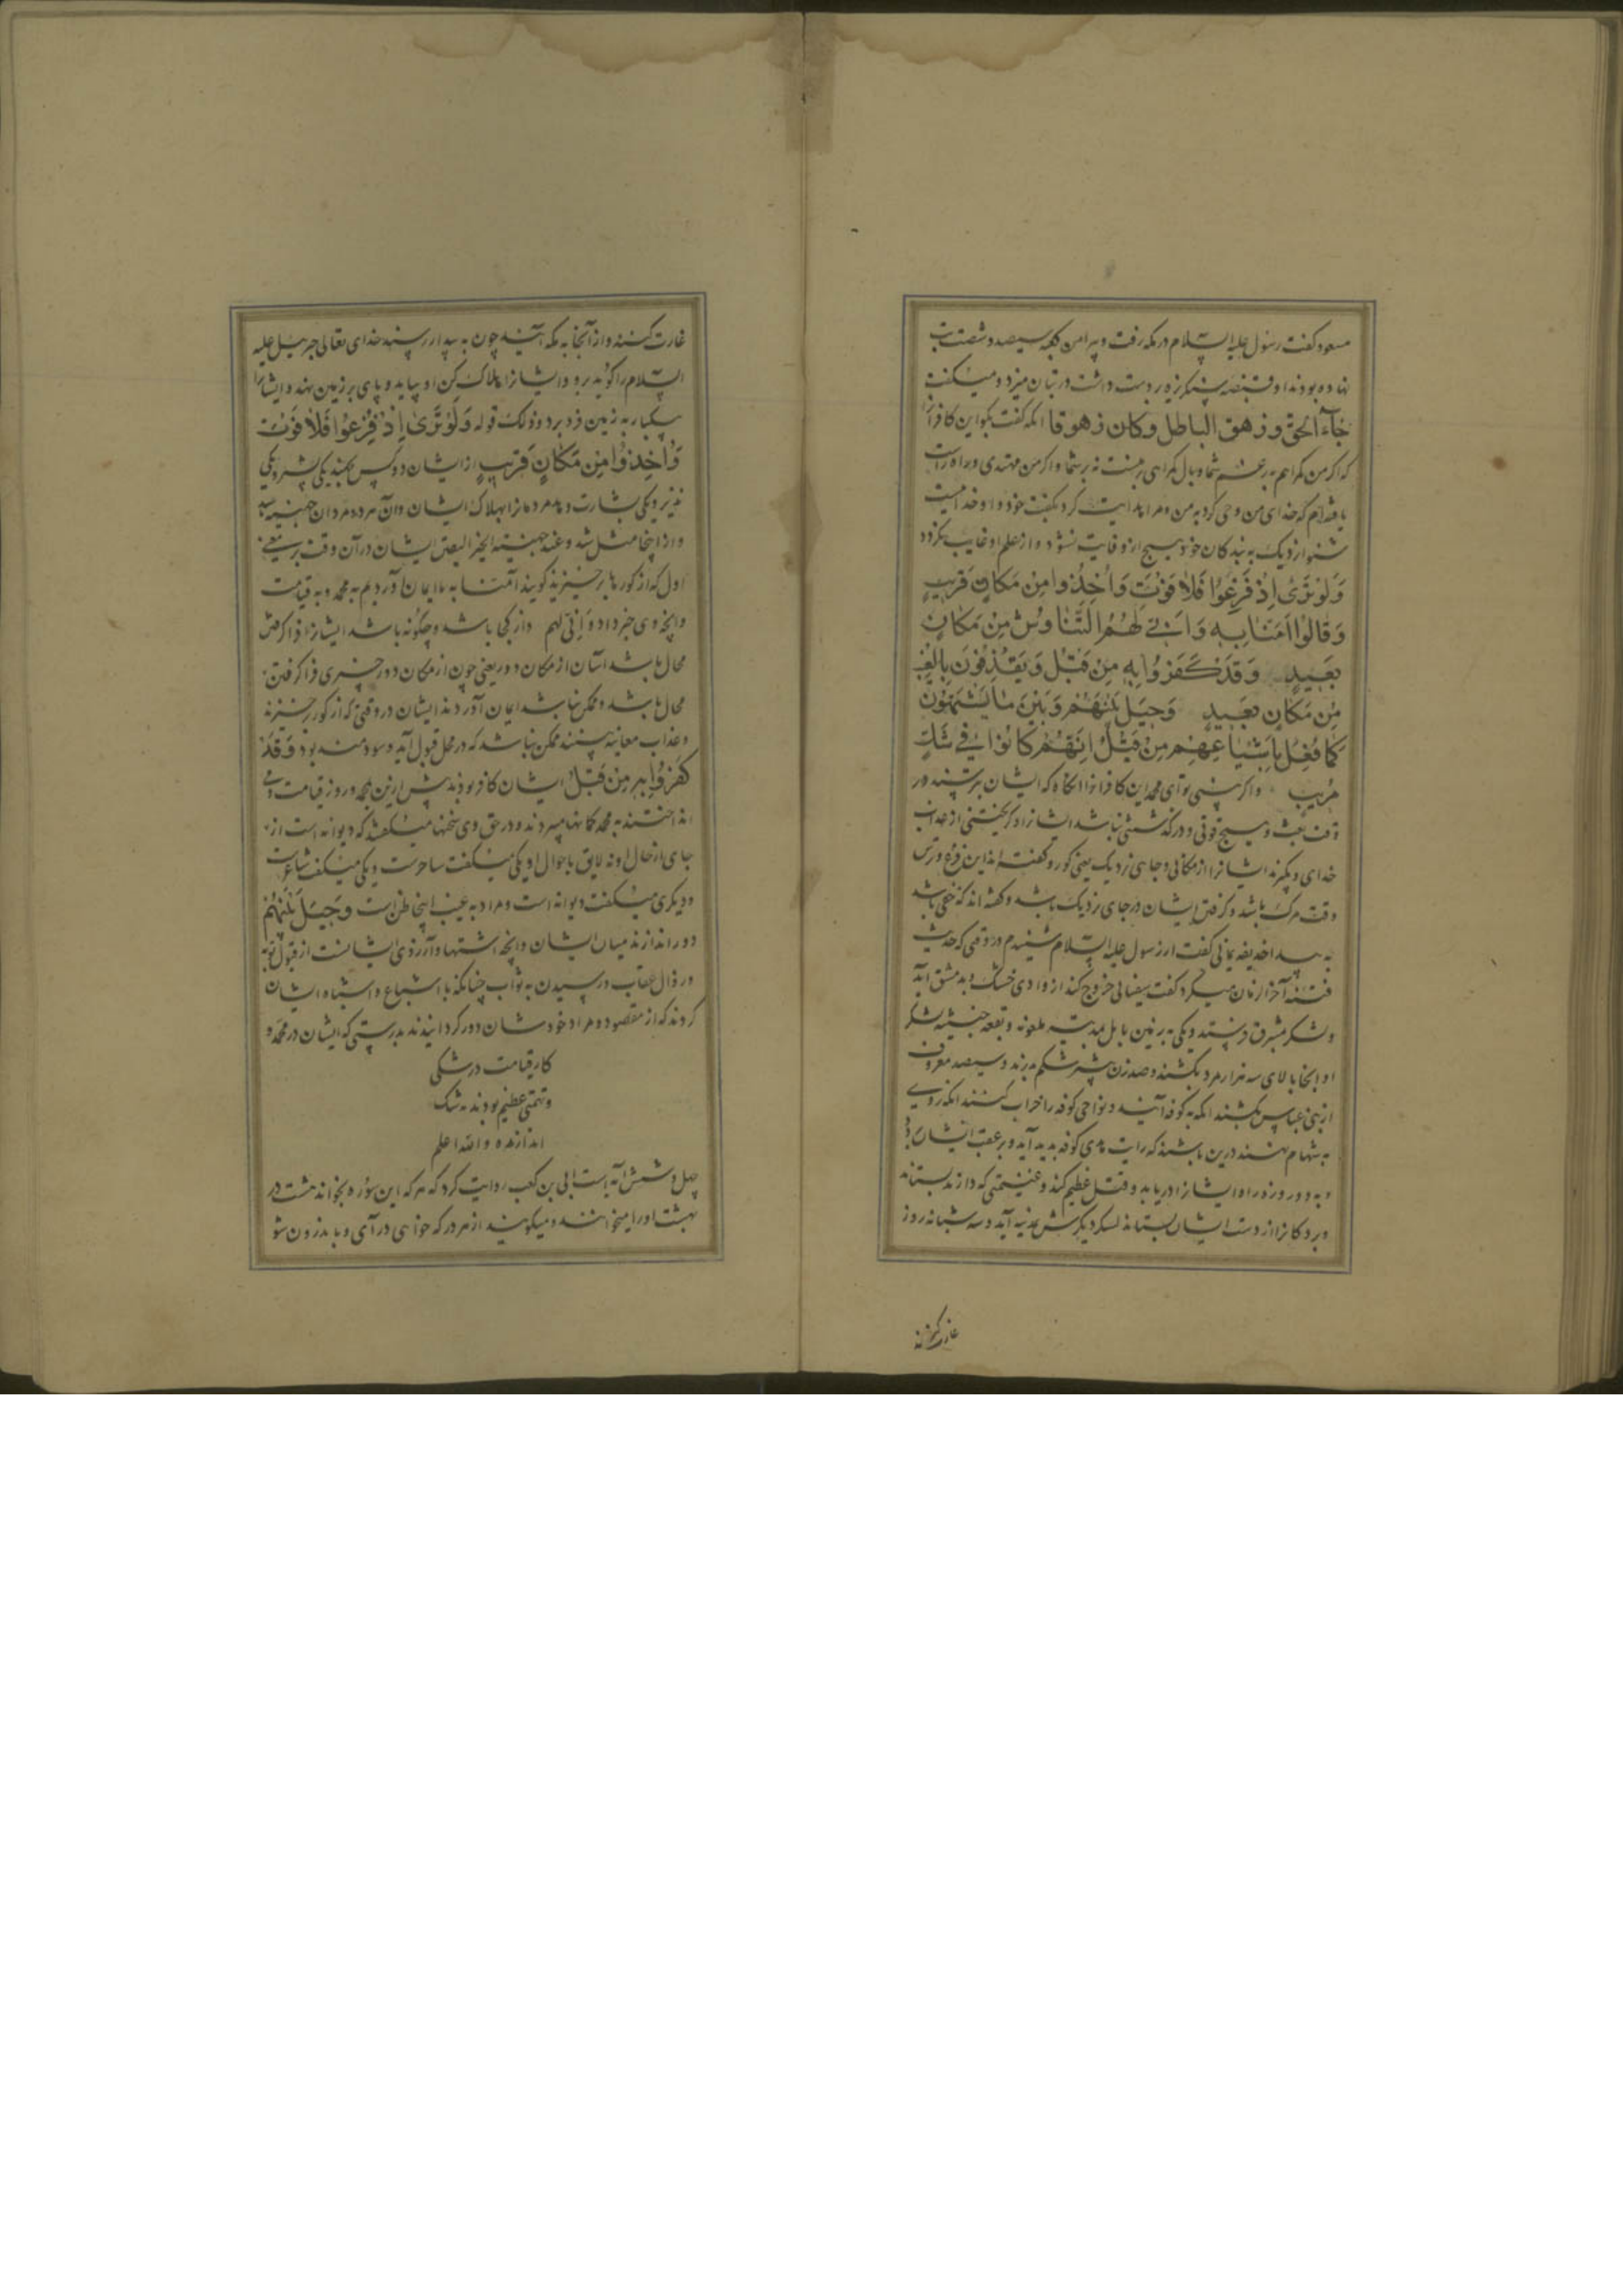 مسعود گفت رسول علیه السّلام در مکه رفت و پیرامن کعبه سیصد و شصت بت
نهاده بودند او قبضه سنکریزه در دست داشت در بتان میزد و میکفت
جَآءَ الحقّ و زهق الباطل و کان زهوقا آنکه گفت بکو این کافرانرا
که اکر من کمراهم بزعم شما وبال کمراهی بر منست نه بر شما و اکر من مهتدی و راه راست
یافته‌ام که خدای من وحی کرد به من و مرا هدایت کرد بکفت خود و او خداییست
شنوا نزدیک به بندکان خود هیچ ازو فایت نشود و از علم او غایب نکردد
وَلَوْ تَرَىٰ اِذْ فَزِعُوْا فَلَا فَوْتَ وَاُخِذُوا مِنْ مَكَانٍ قَرِيبٍ
وَقَالُوْا اٰمَنَّا بِهِ وَاَنّٰى لَهُمُ التَّنَاوُشُ مِنْ مَكَانٍ
بَعِيدٍ وَقَدْ كَفَرُوْا بِهِ مِنْ قَبْلُ وَيَقْذِفُوْنَ بِالْغَيْبِ
مِنْ مَكَانٍ بَعِيدٍ وَحِيْلَ بَيْنَهُمْ وَبَيْنَ مَا يَشْتَهُوْنَ
كَمَا فُعِلَ بِاَشْيَاعِهِمْ مِنْ قَبْلُ اِنَّهُمْ كَانُوْا فِيْ شَكٍّ
مُرِيْبٍ و اکر بینی تو ای محمد این کافرانرا آنکاه که ایشان بترسند در
وقت بعث و هیچ فوتی و درکذشتنی نباشد ایشانرا و کریختنی از عذاب
خدای و بکیرند ایشانرا از مکانی و جایی نزدیک یعنی کور و کفته‌اند این فزع و ترس
وقت مرک باشد و کرفتن ایشان در جای نزدیک باشد و کفته‌اند که خسفی باشد
به بیدا حذیفه یمانی کفت از رسول علیه السّلام شنیدم در وقتی که حدیث
فتنه آخر الزمان میکرد کفت سفیانی خروج کند از وادی خشک و بدمشق آید
و لشکر بمشرق فرستد و یکی به زمین بابل مدینه ملعونه و بقعه خبیثه لشکر
او آنجا بالای سه هزار مرد بکشند و صد زن بیشتر شکم بدرند و سیصد معروف
از بنی عباس بکشند آنکه به کوفه آیند و نواحی کوفه را خراب کنند آنکه روی
به شام نهند درین باشند که رایت هدی کوفه پدید آید و بر عقب ایشان برود
و به دو روزه راه ایشانرا دریابد و قتل عظیم کند و غنیمتی که دارند بستاند
و بردکانرا از دست ایشان بستاند لشکر دیکرش به مدینه آید و سه شبانه روز
غارت کنند
غارت کنند و از آنجا به مکه آیند چون به بیدا رسند خدای تعالی جبرئیل علیه
السّلام را کوید برو و ایشانرا هلاک کن او بیاید و پای بر زمین نهد و ایشانرا
بیکبار به زمین فرو برد و ذلک قوله وَلَوْ تَرَىٰ اِذْ فَزِعُوْا فَلَا فَوْتَ
وَاُخِذُوْا مِنْ مَكَانٍ قَرِيبٍ از ایشان دو کس بجهند یکی بشیر و یکی
نذیر و یکی بشارت دهد مردمانرا بهلاک ایشان و آن هر دو مردان جهینه‌اند
و از اینجا مثل شد و عند جهینه الخبر الیقین ایشان در آن وقت بر معنی
اول که از کورها برخیزند کویند آمنّا به ما ایمان آوردیم به محمد و به قیامت
و آنچه وی خبر داد و اَنّٰی لهم و از کجا باشد و چکونه باشد ایشانرا فراکرفتن
محال باشد آسان از مکان دور یعنی چون از مکان دور چیزی فراکرفتن
محال باشد و ممکن نباشد ایمان آوردند ایشان در وقتی که از کور برخیزند
و عذاب معاینه بینند ممکن نباشد که در محل قبول آید و سودمند بود وَقَدْ
كَفَرُوْا بِهِ مِنْ قَبْلُ ایشان کافر بودند پیش ازین بمحمد و روز قیامت و می
انداختند به محمد کمانها میبردند و در حق وی سخنها میکفتند که دیوانه است از
جای از حال او نه لایق باحوال او یکی میکفت ساحرست و یکی میکفت شاعرست
و دیکری میکفت دیوانه است و مراد به غیب اینجا ظن است وَحِيْلَ بَيْنَهُمْ
دور اندازند میان ایشان و آنچه اشتها و آرزوی ایشانست از قبول توبه
و زوال عقاب و رسیدن به ثواب چنانکه با اشیاع و اشباه ایشان
کردند که از مقصود و مراد خودشان دور کردانیدند بدرستی که ایشان در محمد و
کار قیامت در شکی
و تهمتی عظیم بودند به شک
اندازنده والله اعلم
چهل و شش آیه است ابی بن کعب روایت کرد که هر که این سوره بخواند هشت در
بهشت او را میخوانند و میکویند از هر در که خواهی درآی و باندرون شو